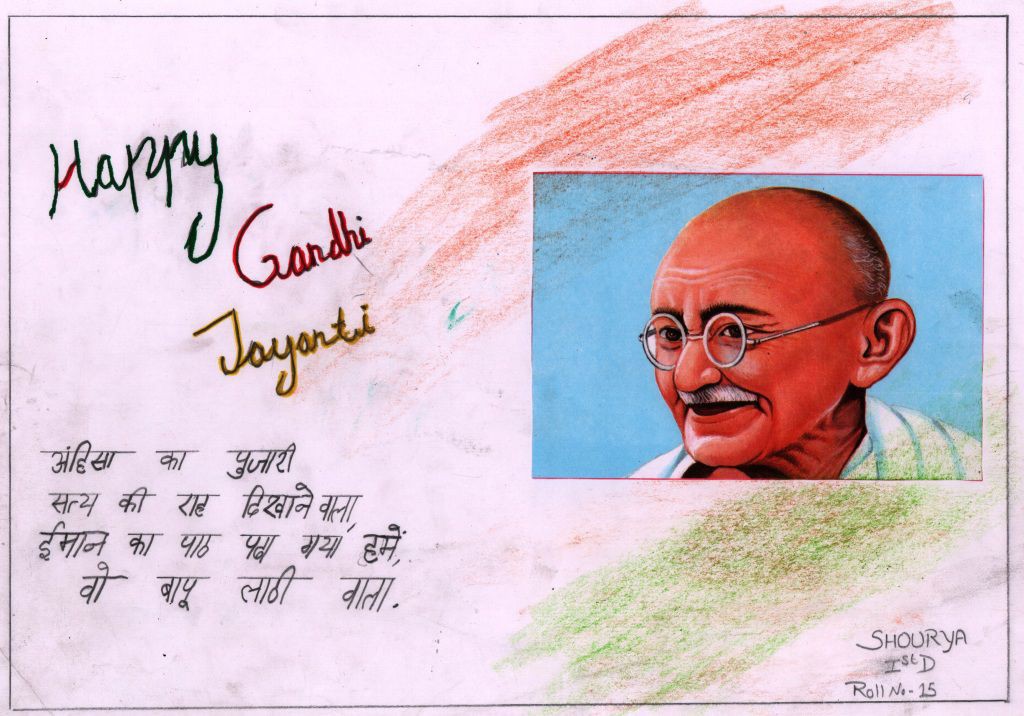 Happy
Gandhi
Jayanti
अंहिसा का पुजारी
सत्य की राह दिखाने वाला,
ईमान का पाठ पढा गया हमें,
वो बापू लाठी वाला.
SHOURYA
Ist D
Roll No- 15